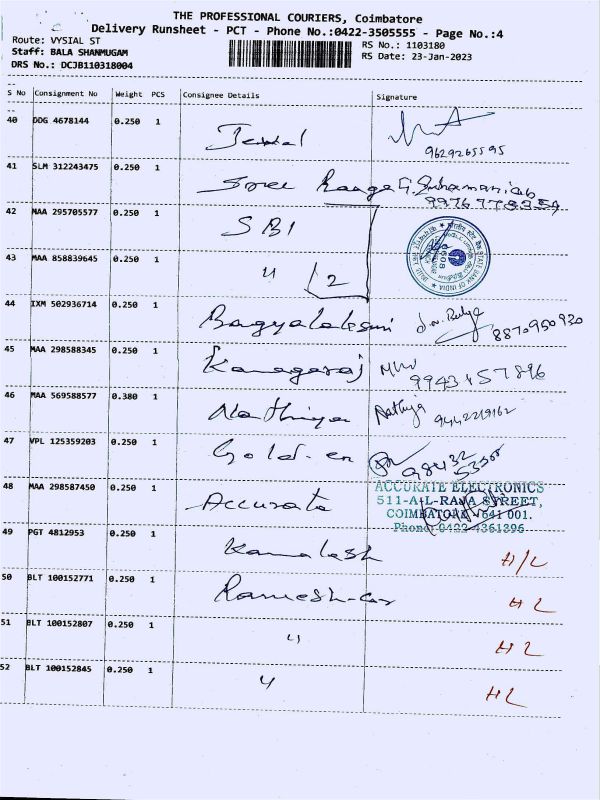 THE PROFESSIONAL COURIERS, Coimbatore
Delivery Runsheet - PCT - Phone No.:0422-3505555 - Page No.:4
Route: VYSIAL ST
RS No.: 1103180
Staff: BALA SHANMUGAM
RS Date: 23-Jan-2023
DRS No.: DCJB110318004
S No Consignment No Weight PCS Consignee Details Signature
40 DDG 4678144 0.250 1
9629265595
41 SLM 312243475 0.250 1 Sree Raaga G.
42 MAA 295705577 0.250 1 SBI
STATE BANK OF INDIA
43 MAA 858839645 0.250 1 " 2
44 IXM 502936714 0.250 1 Bagyalaksmi 8870950930
45 MAA 298588345 0.250 1 Kanagaraj
9943457896
46 MAA 569588577 0.380 1 Nathiya Nathiya
9442219162
47 VPL 125359203 0.250 1 Golden 98432
53500
48 MAA 298587450 0.250 1 Accurate
ACCURATE ELECTRONICS
511-A, L-RAJA STREET,
COIMBATORE - 641 001.
Phone: 0422-4361396
49 PGT 4812953 0.250 1 Kamalesh H/L
50 BLT 100152771 0.250 1 Ramesh-Car HL
51 BLT 100152807 0.250 1 " HL
52 BLT 100152845 0.250 1 " HL